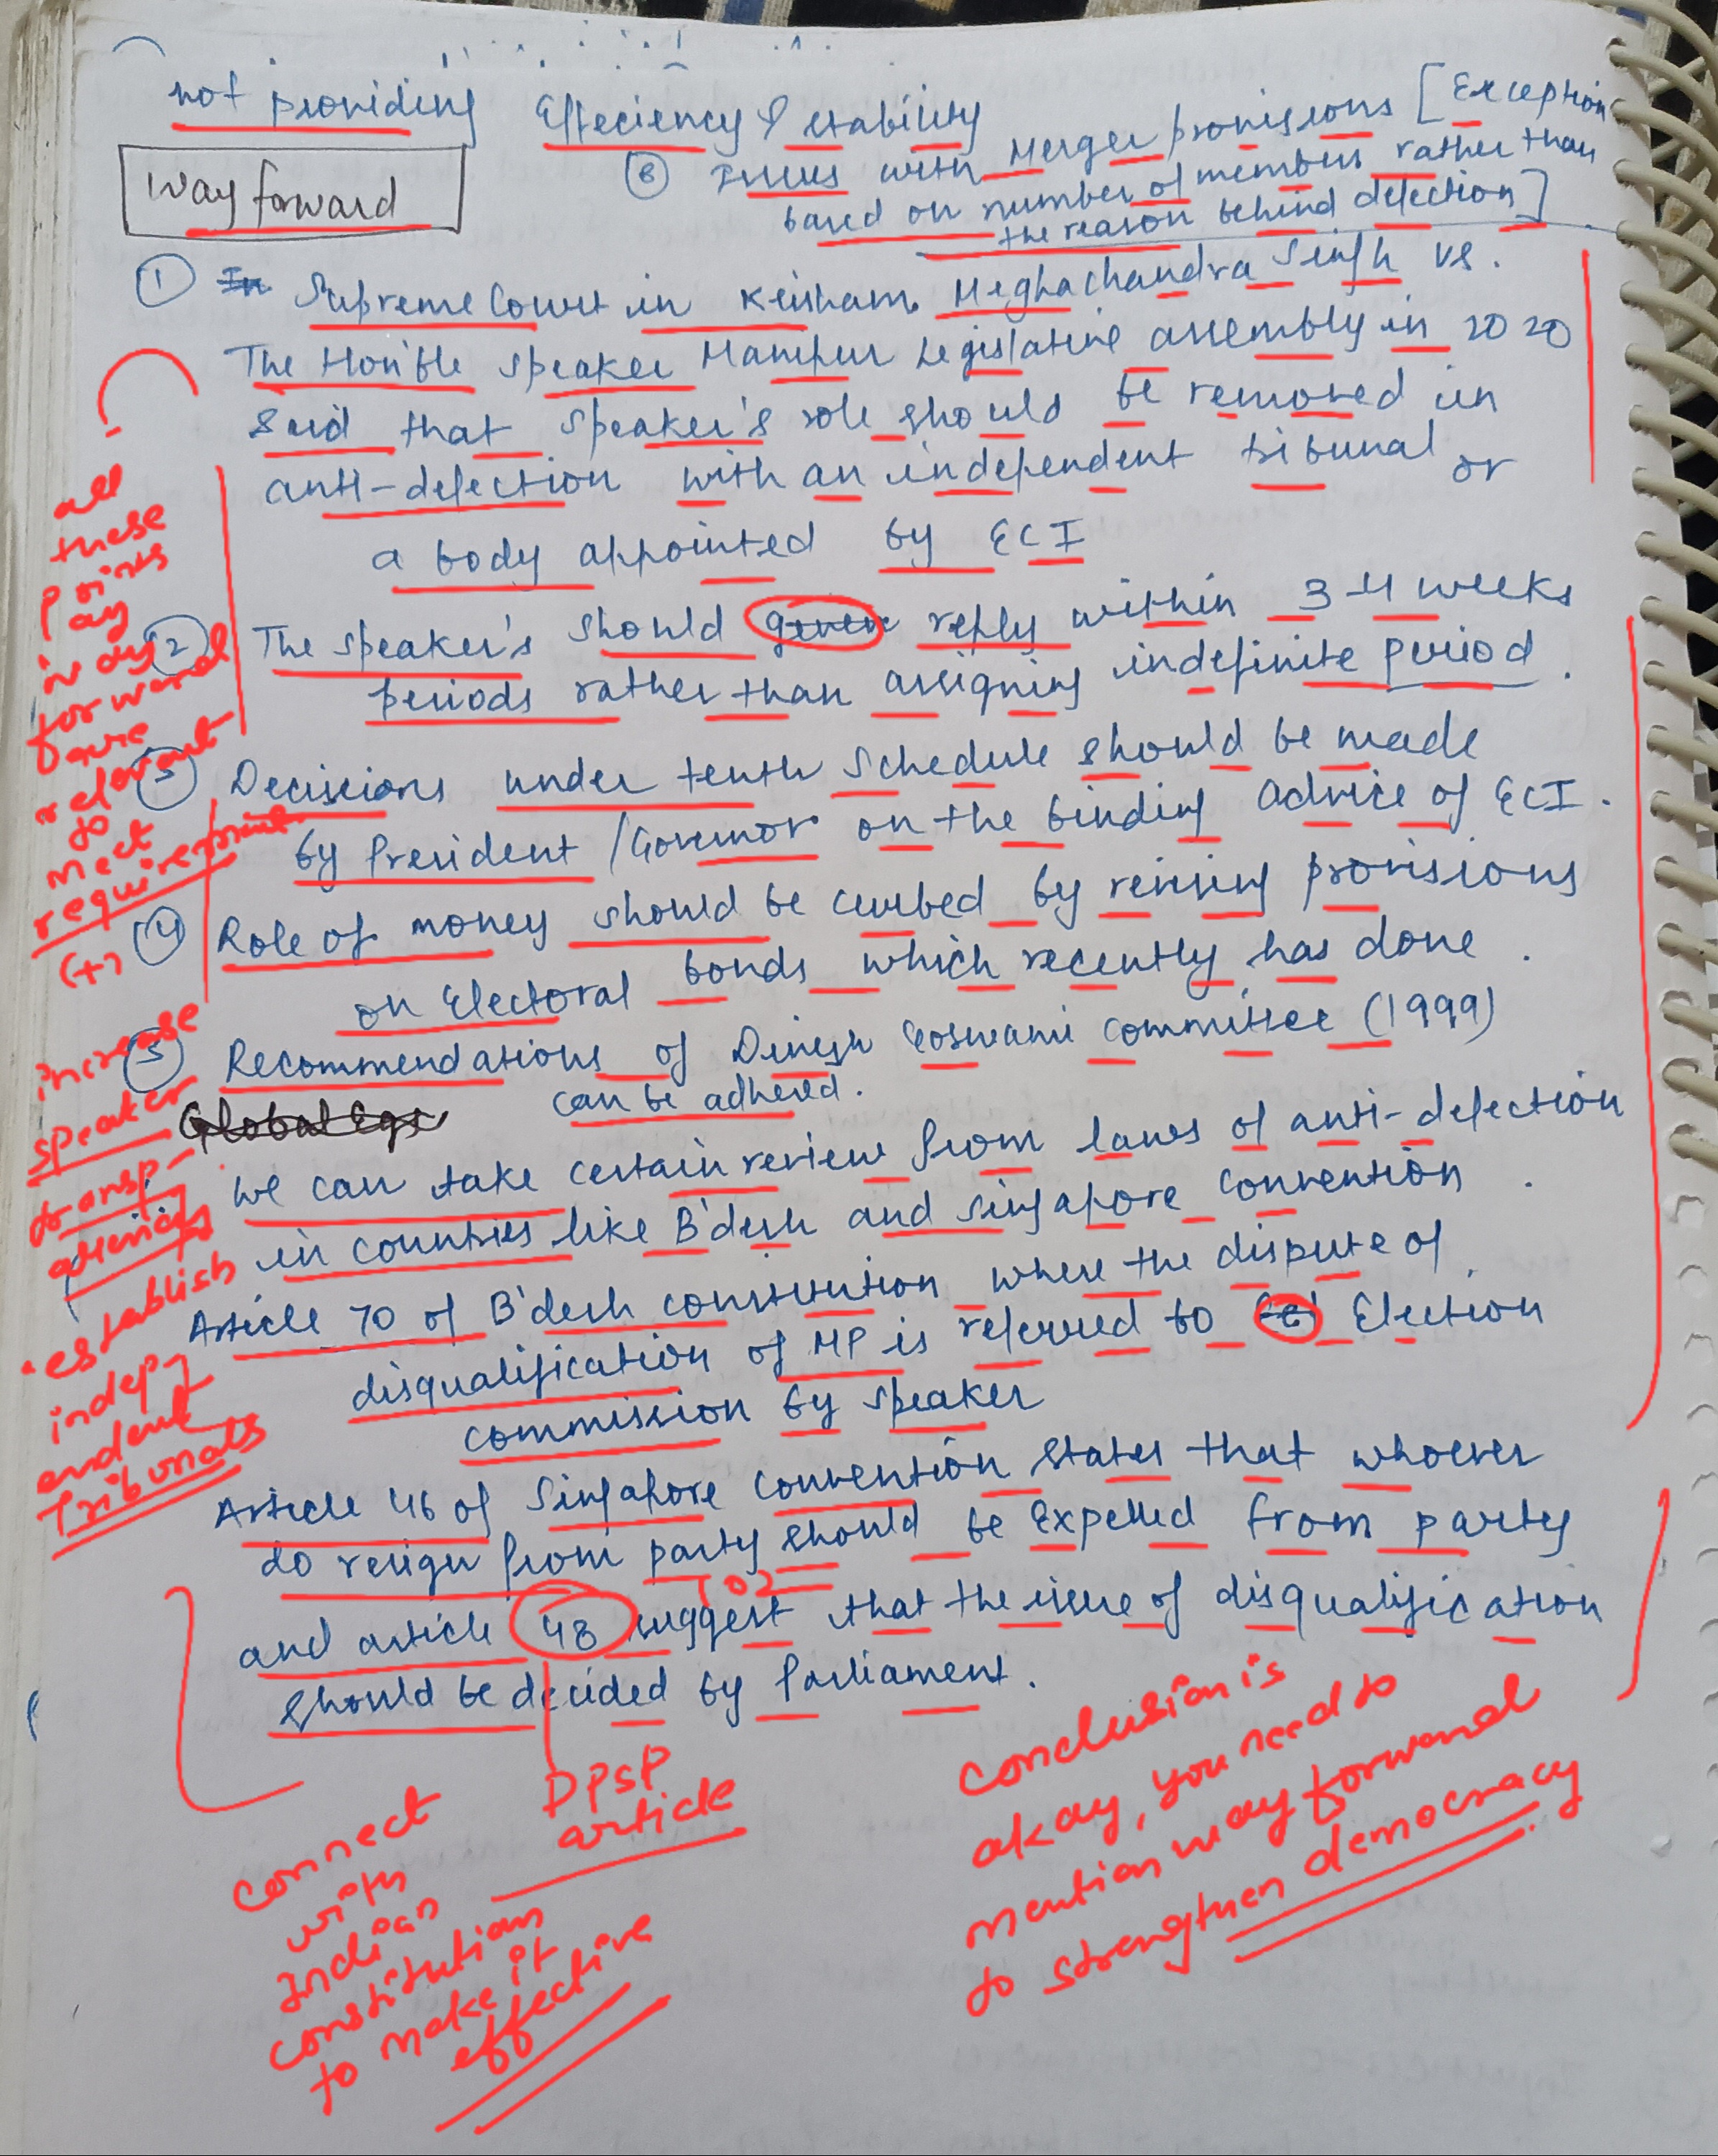 not providing Effeciency & stability
⑥ Issues with Merger provisions [Exception
based on number of members rather than
the reason behind defection]
Way forward
① In Supreme Court in Keisham Meghachandra Singh vs.
The Hon'ble Speaker Manipur Legislative assembly in 2020
said that speaker's role should be removed in
anti-defection with an independent tribunal or
a body appointed by ECI
② The speaker's should given reply within 3-4 weeks
periods rather than assigning indefinite period.
③ Decisions under tenth Schedule should be made
by President / Governor on the binding advice of ECI.
④ Role of money should be curbed by revising provisions
on Electoral bonds which recently has done.
⑤ Recommendations of Dinesh Goswami committee (1999)
can be adhered.
Global Egs
We can take certain review from laws of anti-defection
in countries like B'desh and Singapore convention.
Article 70 of B'desh constitution where the dispute of
disqualification of MP is referred to Election
commission by speaker
Article 46 of Singapore Convention states that whoever
do resign from party should be Expelled from party
and article 48 suggest that the issue of disqualification
should be decided by Parliament.
all
these
points
ay
in ay
forward
are
relevant
to
meet
requirement
(+)
increase
speaker
transp-
arency
• establish
indep-
endent
Tribunals
102
DPSP
article
connect
with
Indian
constitution
to make it
effective
Conclusion is
okay, you need to
mention way forward
to strengthen democracy